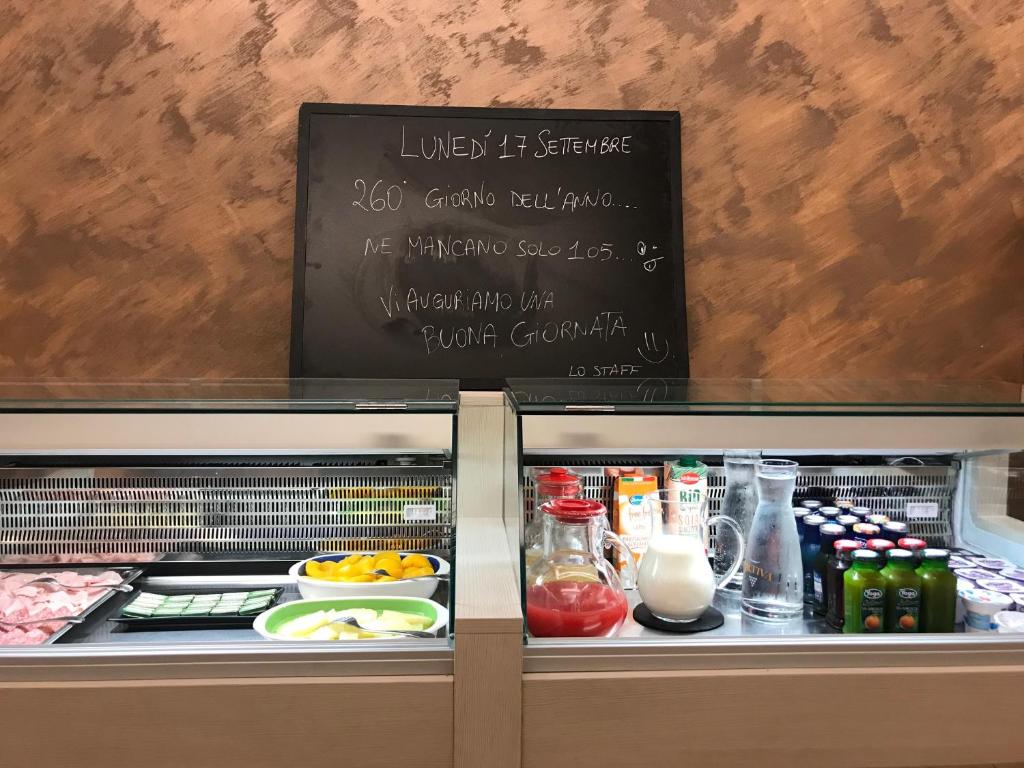 LUNEDÍ 17 SETTEMBRE
260° GIORNO DELL'ANNO....
NE MANCANO SOLO 105...
VI AUGURIAMO UNA
BUONA GIORNATA
LO STAFF
BIO
SOIA
Yoga
Yoga
Yoga